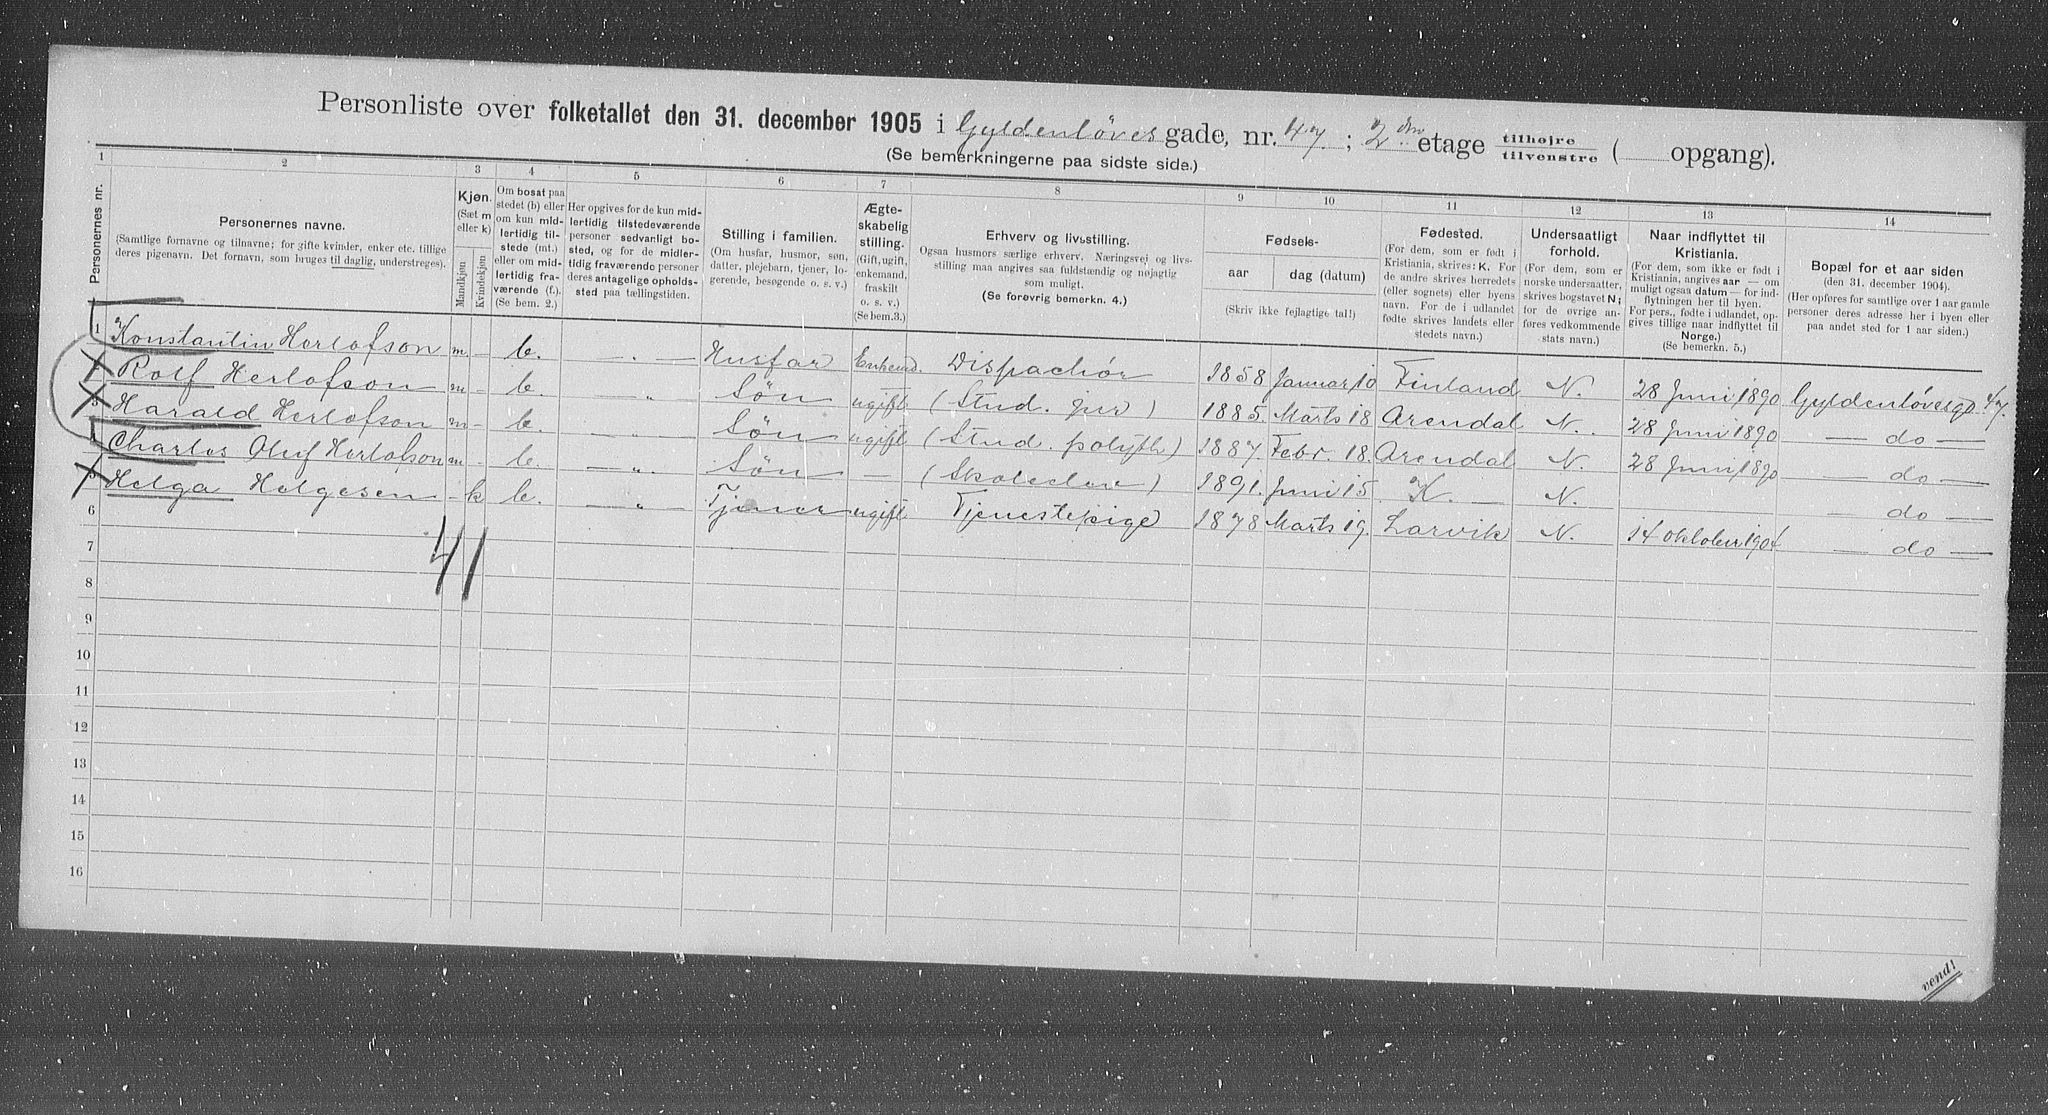 Personliste over folketallet den 31. december 1905 i Gyldenløves gade, nr. 47 ; 2den etage tilhøjre / tilvenstre ( opgang).
(Se bemerkningerne paa sidste side.)
1 2 3 4 5 6 7 8 9 10 11 12 13 14
Personernes nr.
Personernes navne.
(Samtlige fornavne og tilnavne; for gifte kvinder, enker etc. tillige
deres pigenavn. Det fornavn, som bruges til daglig, understreges).
Kjøn.
(Sæt m
eller k)
Mandkjøn
Kvindekjøn
Om bosat paa
stedet (b) eller
om kun mid-
lertidig til-
stede (mt.)
eller om mid-
lertidig fra-
værende (f.).
(Se bem. 2.)
Her opgives for de kun mid-
lertidig tilstedeværende
personer sedvanligt bo-
sted, og for de midler-
tidig fraværende personer
deres antagelige opholds-
sted paa tællingstiden.
Stilling i familien.
(Om husfar, husmor, søn,
datter, plejebarn, tjener, lo-
gerende, besøgende o. s. v.)
Ægte-
skabelig
stilling.
(Gift, ugift,
enkemand,
fraskilt
o. s. v.)
(Se bem.3.)
Erhverv og livsstilling.
Ogsaa husmors særlige erhverv. Næringsvej og livs-
stilling maa angives saa fuldstændig og nøjagtig
som muligt.
(Se forøvrig bemerkn. 4.)
Fødsels-
aar dag (datum)
(Skriv ikke fejlagtige tal!)
Fødested.
(For dem, som er født i
Kristiania, skrives: K. For
de andre skrives herredets
(eller sognets) eller byens
navn. For de i udlandet
fødte skrives landets eller
stedets navn.)
Undersaatligt
forhold.
(For dem, som er
norske undersaatter,
skrives bogstavet N;
for de øvrige an-
føres vedkommende
stats navn.)
Naar indflyttet til
Kristiania.
(For dem, som ikke er født i
Kristiania, angives aar — om
muligt ogsaa datum — for ind-
flytningen her til byen.
For pers., fødte i udlandet, op-
gives tillige naar indflyttet til
Norge.)
(Se bemerkn. 5.)
Bopæl for et aar siden
(den 31. december 1904).
(Her opføres for samtlige over 1 aar gamle
personer deres adresse her i byen eller
paa andet sted for 1 aar siden.)
1 Konstantin Herlofson m - b. — „ — Husfar Enkemd. Dispachør 1858 Januar 10 Finland N. 28 Juni 1890 Gyldenløvesgd. 47.
Rolf Herlofson m - b. — „ Søn ugift (Stud. jur) 1885. Marts 18 Arendal N. 28 Juni 1890 — do —
3 Harald Herlofson m - b. — „ Søn ugift (Stud. polyt) 1887. Febr. 18. Arendal N. 28 Juni 1890 — do —
Charles Oluf Herlofson m - b. — „ Søn — (Skoleelev) 1891. Juni 15 K. — N. — do —
5 Helga Helgesen - k b. — „ Tjener ugift Tjenestepige 1878 Marts 19. Larvik N. 14 oktober 1904 — do —
6
41
7
8
9
10
11
12
13
14
15
16
vend!